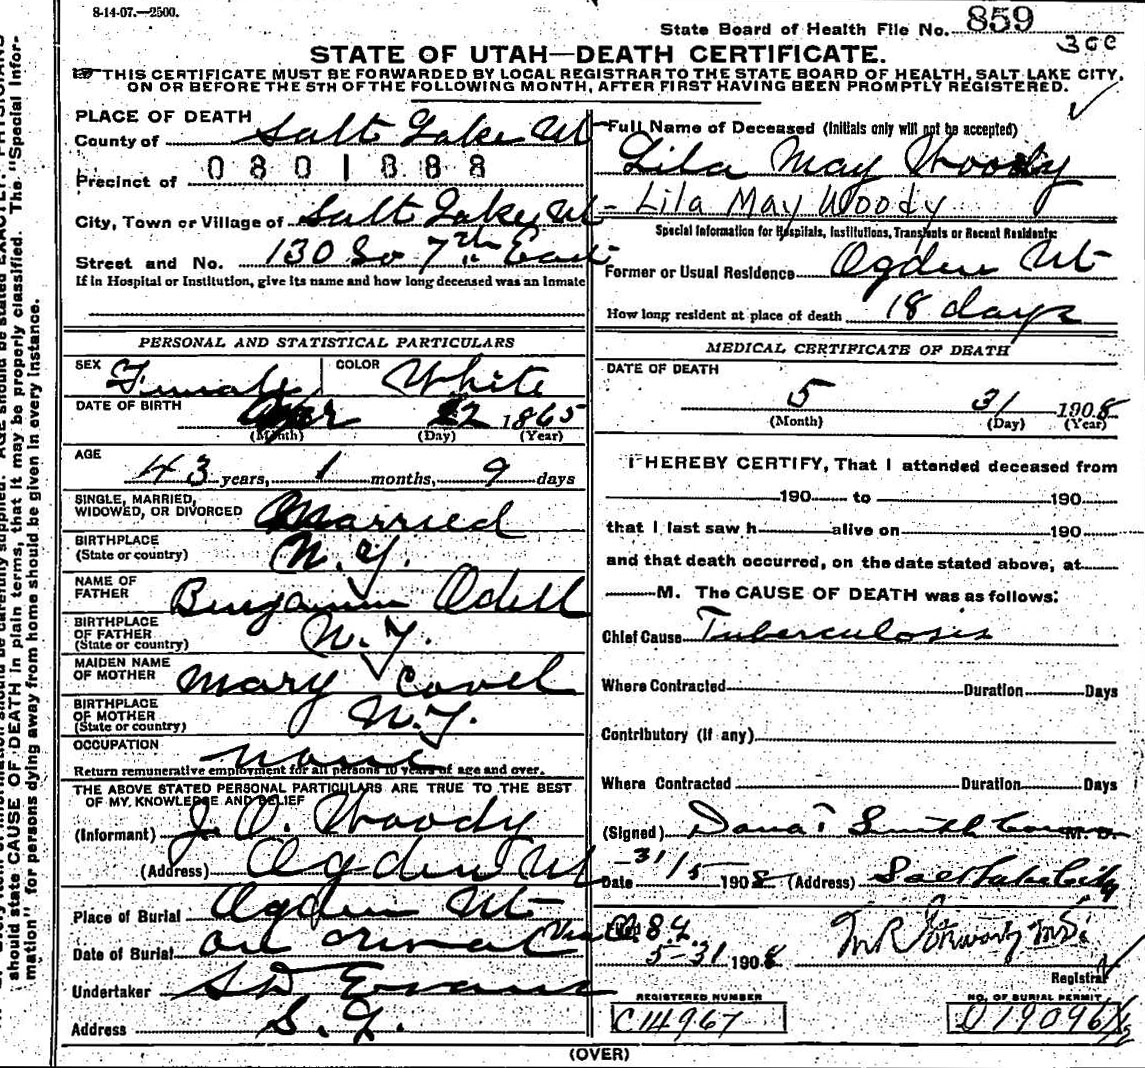 8-14-07.—2500.
State Board of Health File No. 859
300
STATE OF UTAH—DEATH CERTIFICATE.
THIS CERTIFICATE MUST BE FORWARDED BY LOCAL REGISTRAR TO THE STATE BOARD OF HEALTH, SALT LAKE CITY,
ON OR BEFORE THE 5TH OF THE FOLLOWING MONTH, AFTER FIRST HAVING BEEN PROMPTLY REGISTERED.
PLACE OF DEATH
County of Salt Lake Ut
0801888
Precinct of
City, Town or Village of Salt Lake Ut
Street and No. 130 So 7th East
If in Hospital or Institution, give its name and how long deceased was an inmate
Full Name of Deceased (Initials only will not be accepted)
Lila May Woody
Lila May Woody
Special Information for Hospitals, Institutions, Transients or Recent Residents:
Former or Usual Residence Ogden Ut
How long resident at place of death 18 days
PERSONAL AND STATISTICAL PARTICULARS
SEX Female COLOR White
DATE OF BIRTH Apr 22 1865
(Month) (Day) (Year)
AGE 43 years, 1 months, 9 days
SINGLE, MARRIED, WIDOWED, OR DIVORCED Married
BIRTHPLACE (State or country) N.Y.
NAME OF FATHER Benjamin Odell
BIRTHPLACE OF FATHER (State or country) N.Y.
MAIDEN NAME OF MOTHER Mary Covel
BIRTHPLACE OF MOTHER (State or country) N.Y.
OCCUPATION None
Return remunerative employment for all persons 10 years of age and over.
THE ABOVE STATED PERSONAL PARTICULARS ARE TRUE TO THE BEST
OF MY KNOWLEDGE AND BELIEF
(Informant) J. O. Woody
(Address) Ogden Ut
Place of Burial Ogden Ut
Date of Burial on arrival
Undertaker S D Evans
Address S. L.
MEDICAL CERTIFICATE OF DEATH
DATE OF DEATH
5 31 1908
(Month) (Day) (Year)
I HEREBY CERTIFY, That I attended deceased from
190 to 190
that I last saw h alive on 190
and that death occurred, on the date stated above, at
M. The CAUSE OF DEATH was as follows:
Chief Cause Tuberculosis
Where Contracted Duration Days
Contributory (if any)
Where Contracted Duration Days
(Signed) Dana T Smith M. D.
Date 31/5 1908 (Address) Salt Lake City
5-31 1908
Registrar
REGISTERED NUMBER
C 14967
NO. OF BURIAL PERMIT
D 19096
(OVER)
AGE should be stated EXACTLY. PHYSICIANS
should state CAUSE OF DEATH in plain terms, that it may be properly classified. The "Special Infor-
mation" for persons dying away from home should be given in every instance.